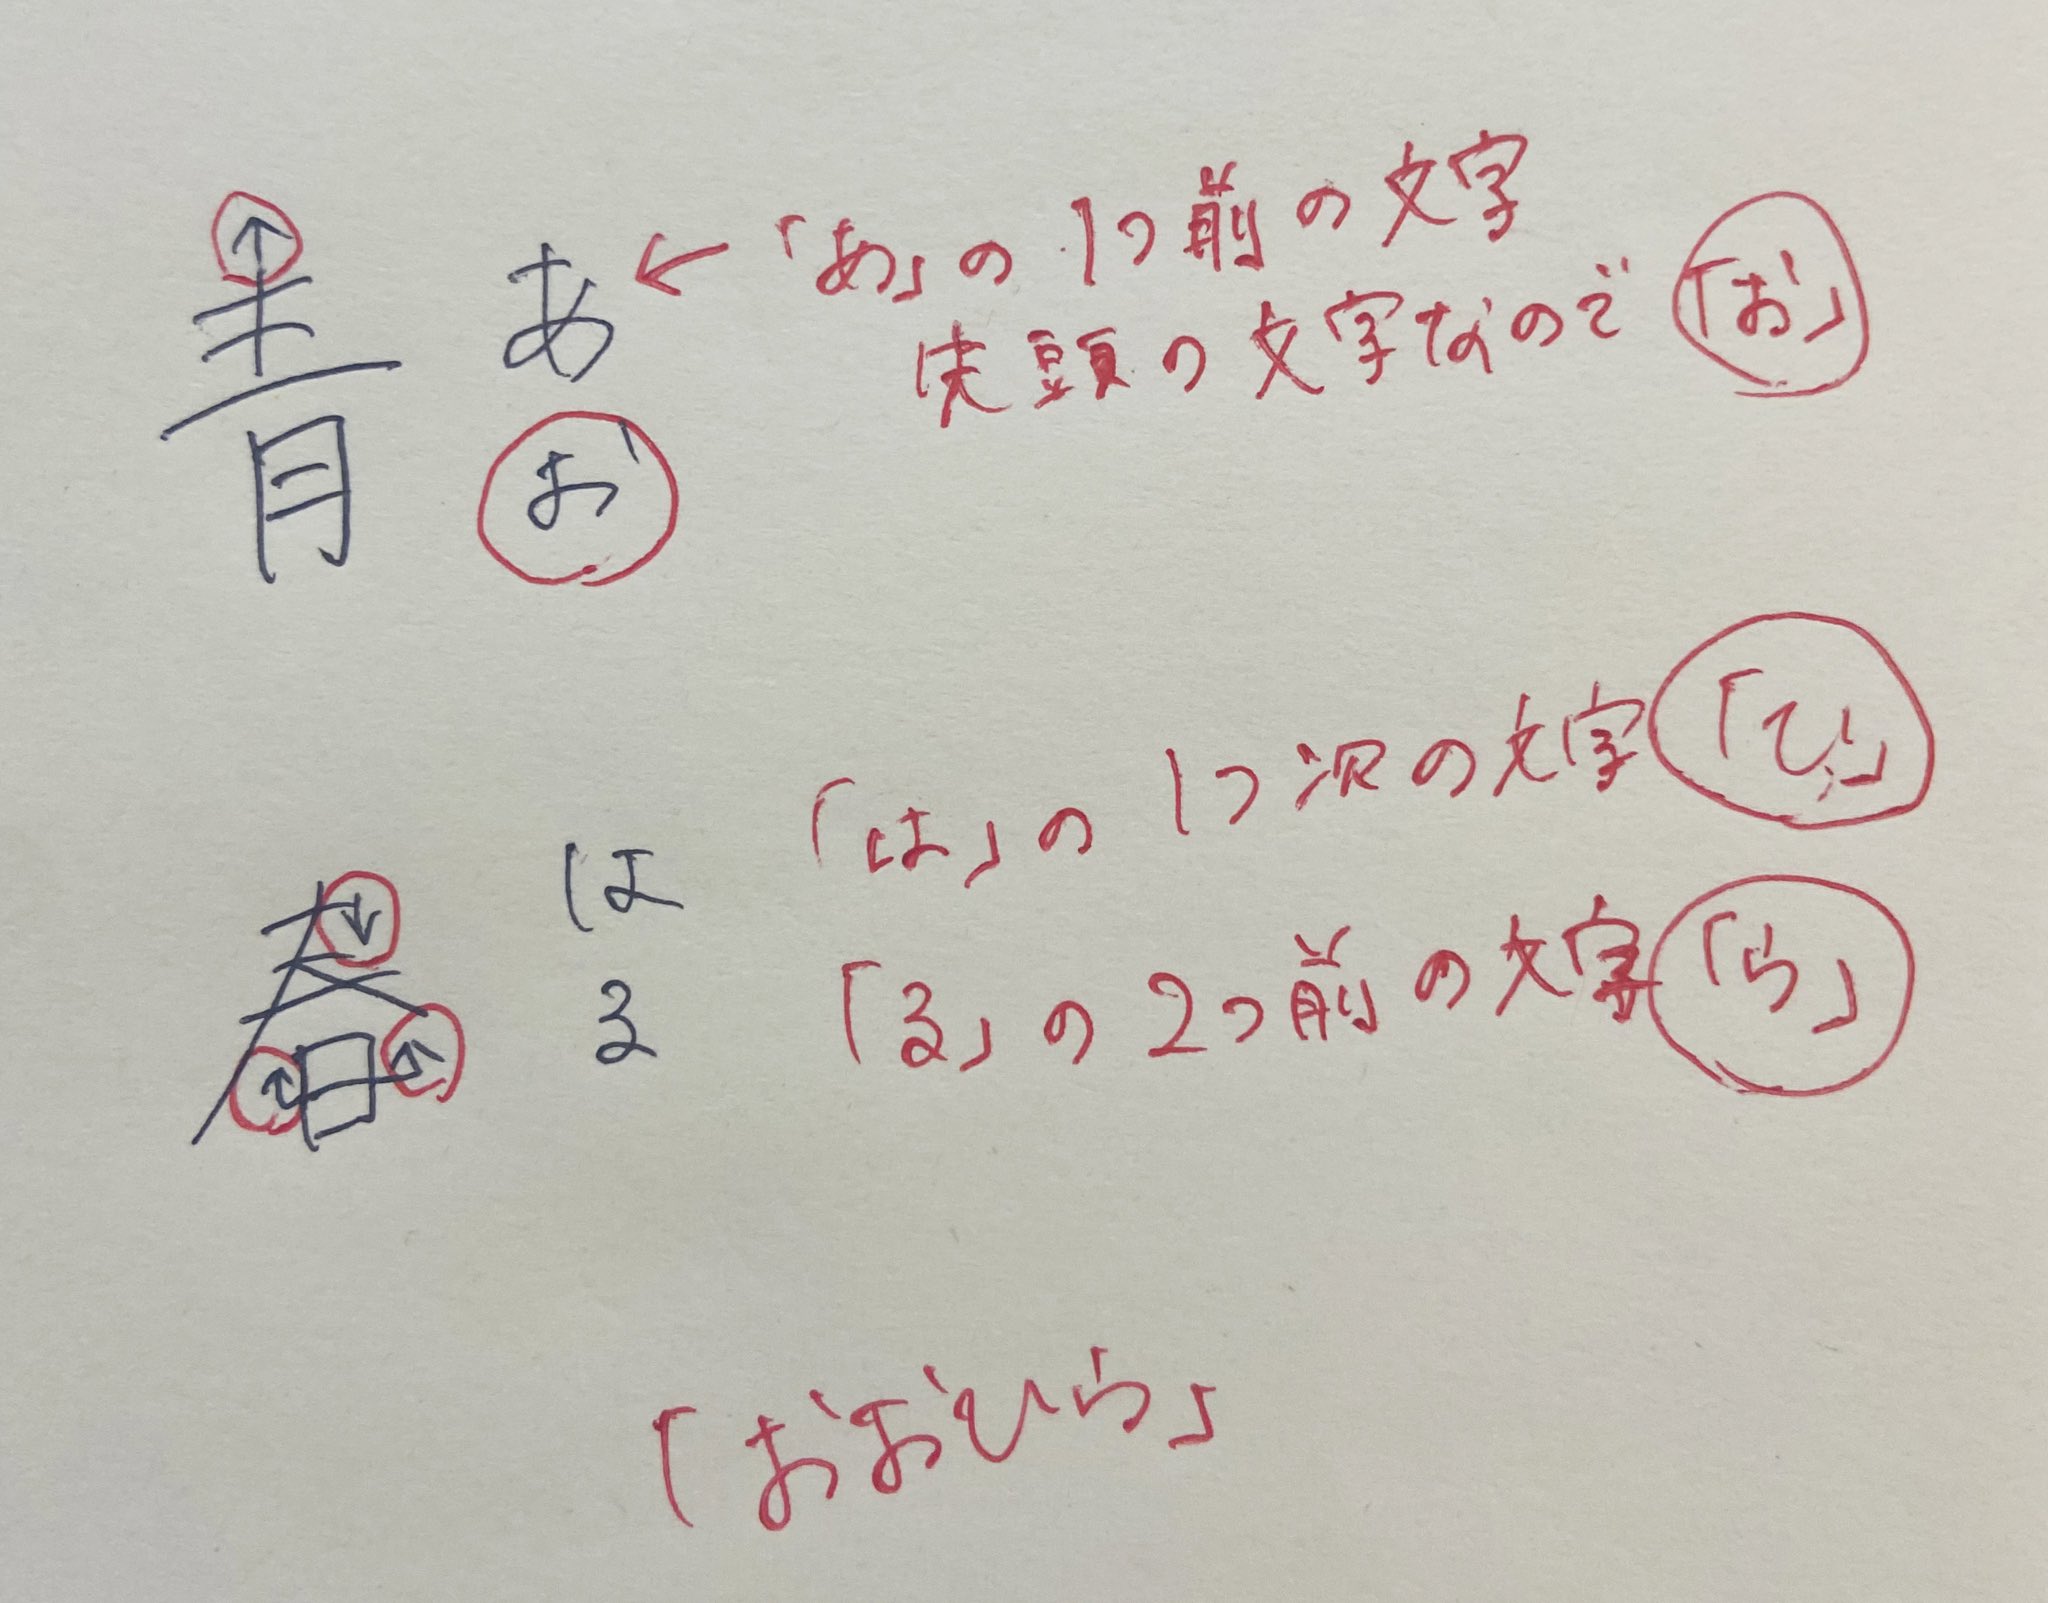 青 あ ← 「あ」の1つ前の文字
先頭の文字なので「お」
お
「は」の1つ次の文字「ひ」
春 は
る 「る」の2つ前の文字「ら」
「おおひら」